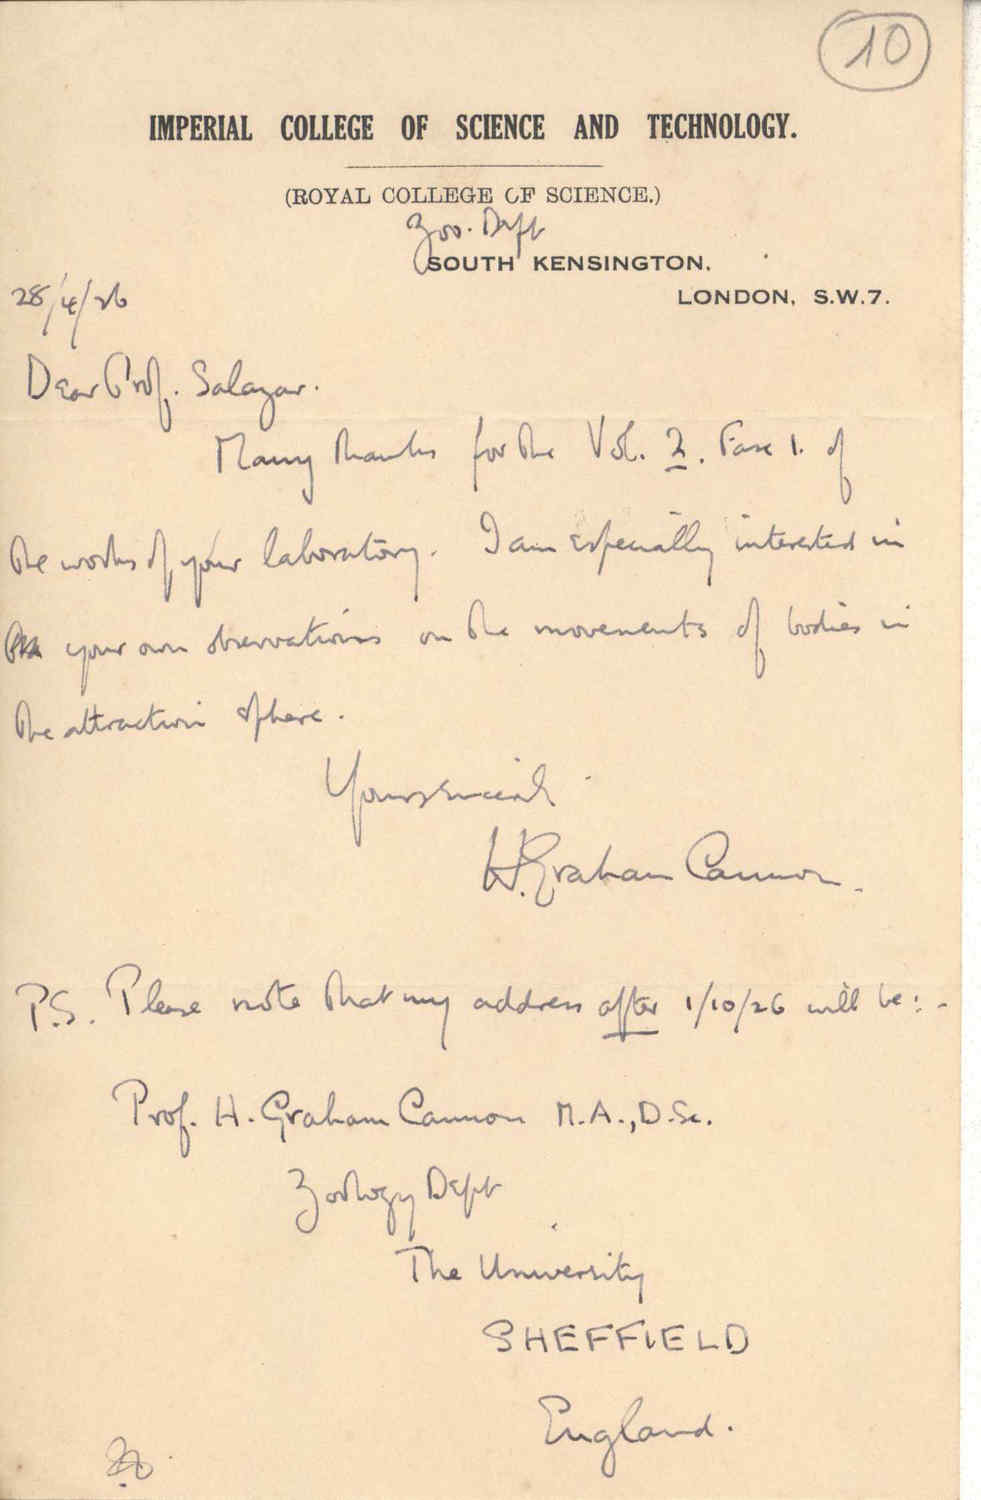 10
IMPERIAL COLLEGE OF SCIENCE AND TECHNOLOGY.
(ROYAL COLLEGE OF SCIENCE.)
Zoo. Dept
SOUTH KENSINGTON,
LONDON, S.W.7.
28/4/26
Dear Prof. Salazar.
Many thanks for the Vol. 2. Fasc 1. of
the works of your laboratory. I am especially interested in
your own observations on the movements of bodies in
the attraction sphere.
Yours sincerely
H. Graham Cannon.
P.S. Please note that my address after 1/10/26 will be:-
Prof. H. Graham Cannon M.A., D.Sc.
Zoology Dept
The University
SHEFFIELD
England.